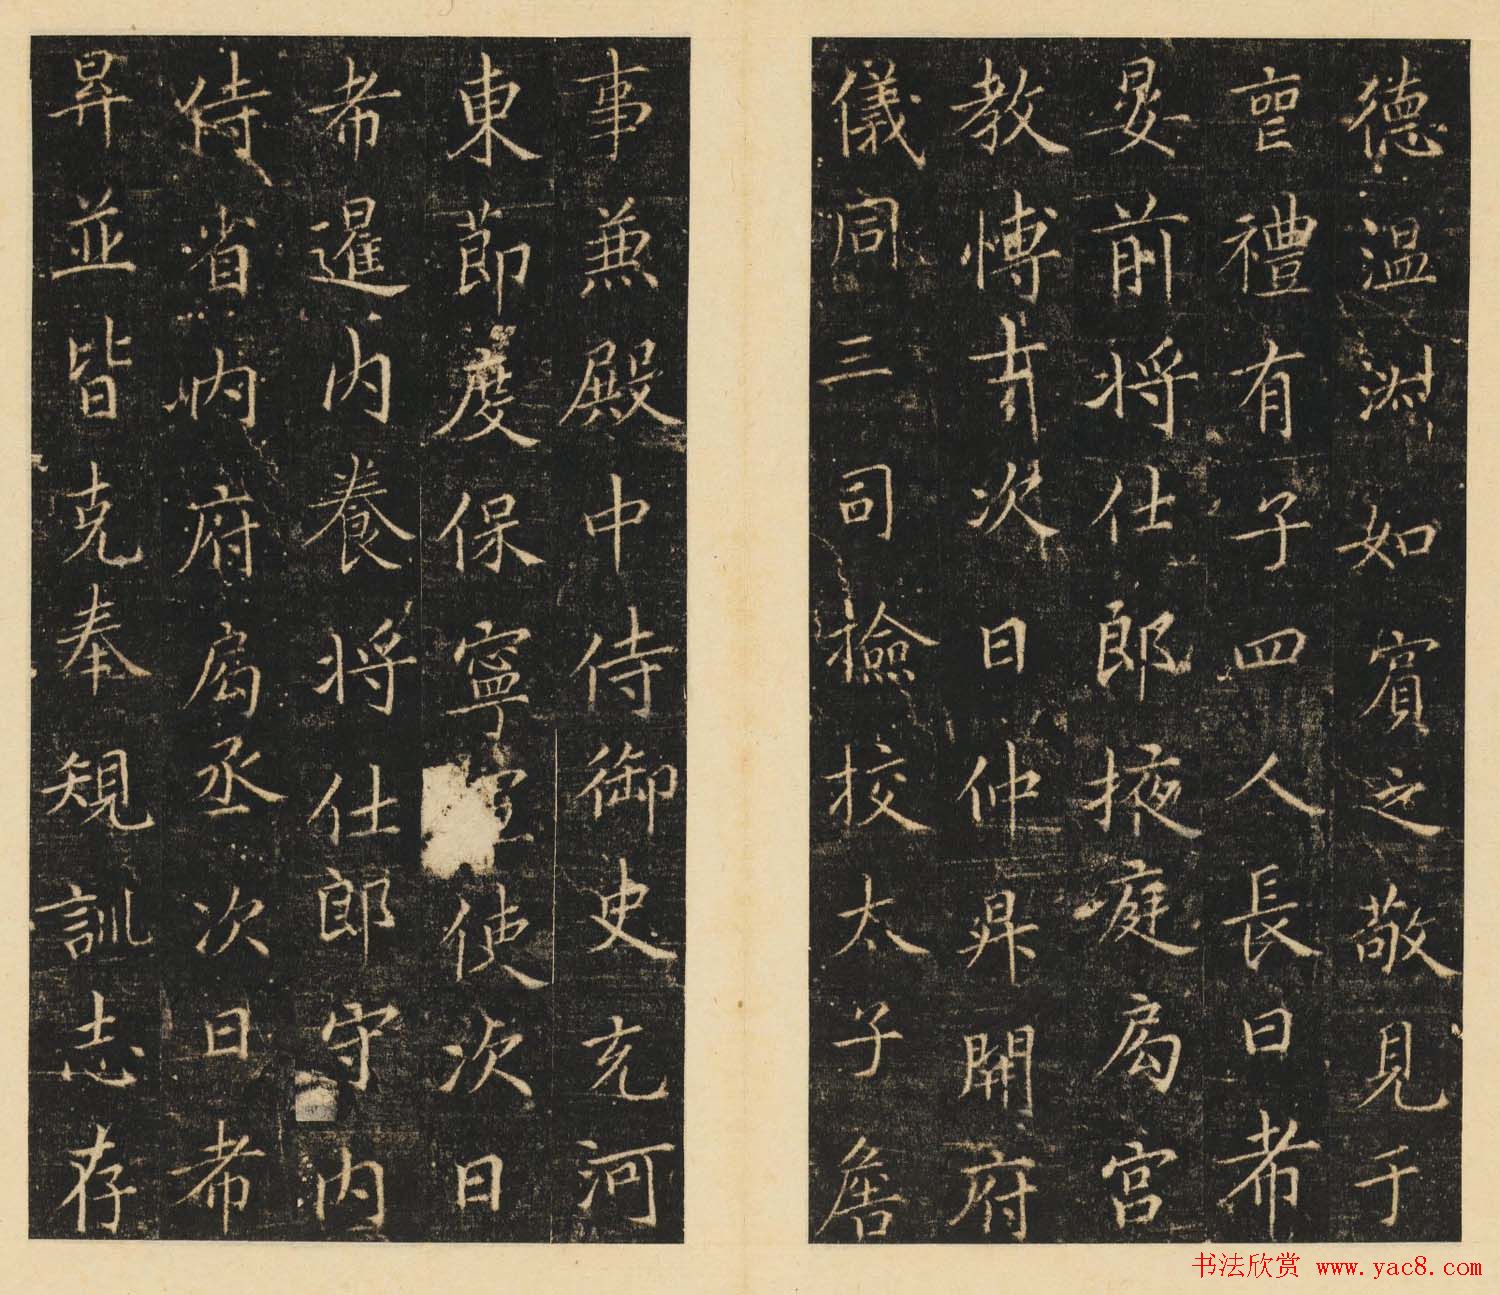 德温淵如賓之敬見于
禮有子四人長曰希
晏前將仕郎掖庭局宮
教博士次曰仲昇開府
儀同三司撿挍太子詹
事兼殿中侍御史充河
東節度保寧使次曰
希暹内養將仕郎守内
侍省内府局丞次曰希
昇並皆克奉規訓志存
书法欣赏 www.yac8.com